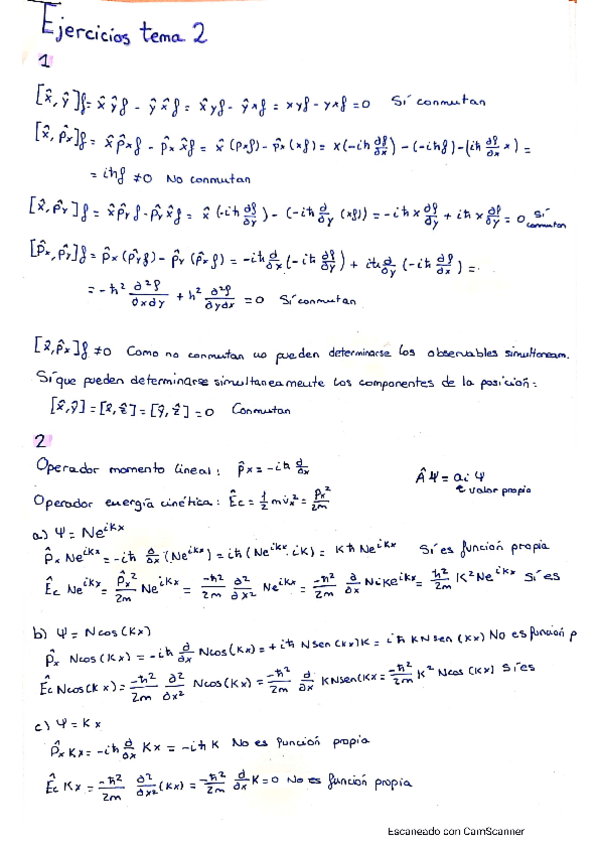 Ejercicios tema 2
1
[x̂, ŷ]f = x̂ ŷ f - ŷ x̂ f = x̂ y f - ŷ x f = x y f - y x f = 0 Sí conmutan
[x̂, p̂x]f = x̂ p̂x f - p̂x x̂ f = x̂ (p x f) - p̂x (x f) = x(-iħ ∂f/∂x) - (-iħ f) - (-iħ ∂f/∂x x) =
= iħf ≠0 No conmutan
[x̂, p̂y]f = x̂ p̂y f - p̂y x̂ f = x̂ (-iħ ∂f/∂y) - (-iħ ∂/∂y (x f)) = -iħ x ∂f/∂y + iħ x ∂f/∂y = 0 sí conmutan
[p̂x, p̂y]f = p̂x (p̂y f) - p̂y (p̂x f) = -iħ ∂/∂x (-iħ ∂f/∂y) + iħ ∂/∂y (-iħ ∂f/∂x) =
= -ħ² ∂²f/∂x∂y + ħ² ∂²f/∂y∂x = 0 Sí conmutan
[x̂, p̂x]f ≠0 Como no conmutan no pueden determinarse los observables simultaneam.
Sí que pueden determinarse simultaneamente las componentes de la posición:
[x̂, ŷ] = [x̂, ẑ] = [ŷ, ẑ] = 0 Conmutan
2
Operador momento lineal: p̂x = -iħ d/dx Âψ = ai ψ
Operador energía cinética: Êc = 1/2 m v̂x² = p̂x²/2m valor propio
a) Ψ = Ne^ikx
p̂x Ne^ikx = -iħ ∂/∂x (Ne^ikx) = iħ (Ne^ikx · iK) = Kħ Ne^ikx Sí es función propia
Êc Ne^ikx = p̂x²/2m Ne^ikx = -ħ²/2m ∂²/∂x² Ne^ikx = -ħ²/2m ∂/∂x NiKe^ikx = ħ²/2m K² Ne^ikx Sí es
b) Ψ = Ncos(Kx)
p̂x Ncos(Kx) = -iħ d/dx Ncos(Kx) = +iħ Nsen(Kx)K = iħ KNsen(Kx) No es función p
Êc Ncos(Kx) = -ħ²/2m ∂²/∂x² Ncos(Kx) = -ħ²/2m d/dx KNsen(Kx = -ħ²/2m K² Ncos(Kx) Sí es
c) Ψ = Kx
p̂x Kx = -iħ d/dx Kx = -iħ K No es función propia
Êc Kx = -ħ²/2m ∂²/∂x² (Kx) = -ħ²/2m d/dx K = 0 No es función propia
Escaneado con CamScanner